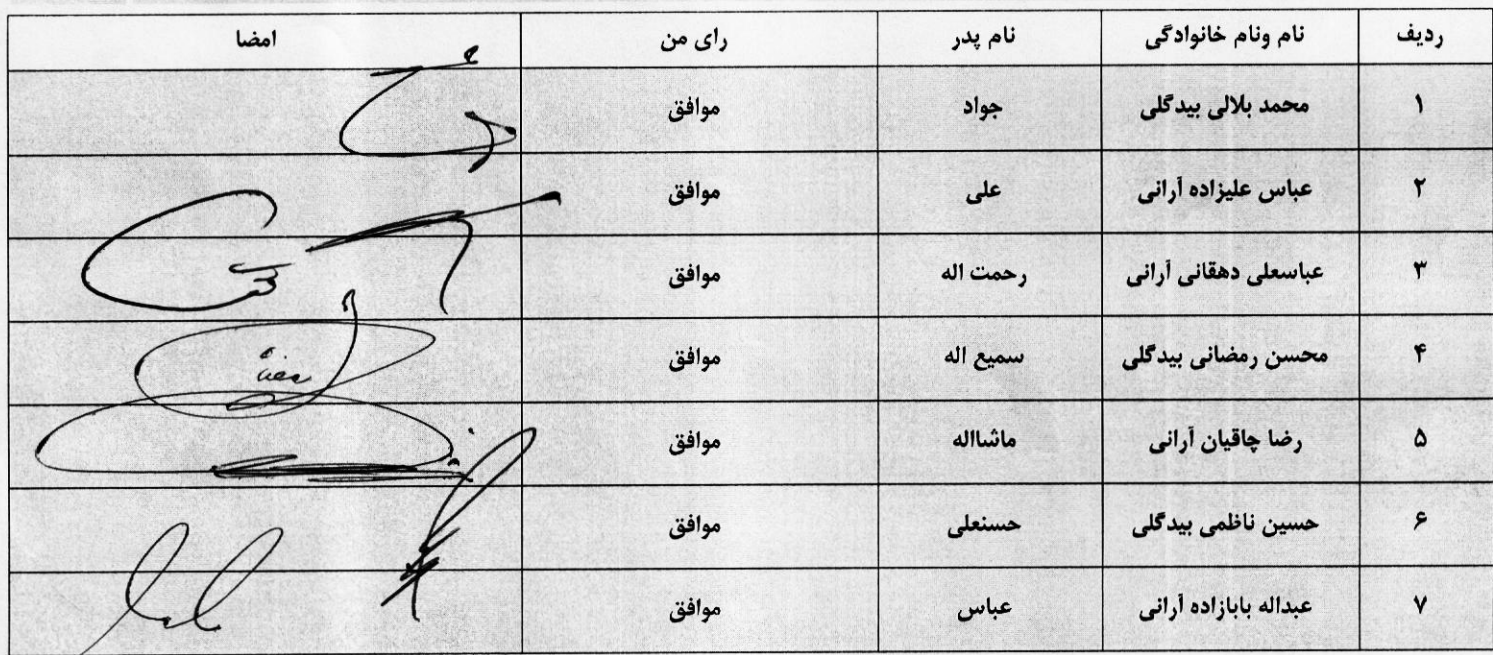 ردیف نام ونام خانوادگی نام پدر رای من امضا
۱ محمد بلالی بیدگلی جواد موافق
۲ عباس علیزاده آرانی علی موافق
۳ عباسعلی دهقانی آرانی رحمت اله موافق
۴ محسن رمضانی بیدگلی سمیع اله موافق
۵ رضا چاقیان آرانی ماشااله موافق
۶ حسین ناظمی بیدگلی حسنعلی موافق
۷ عبداله بابازاده آرانی عباس موافق